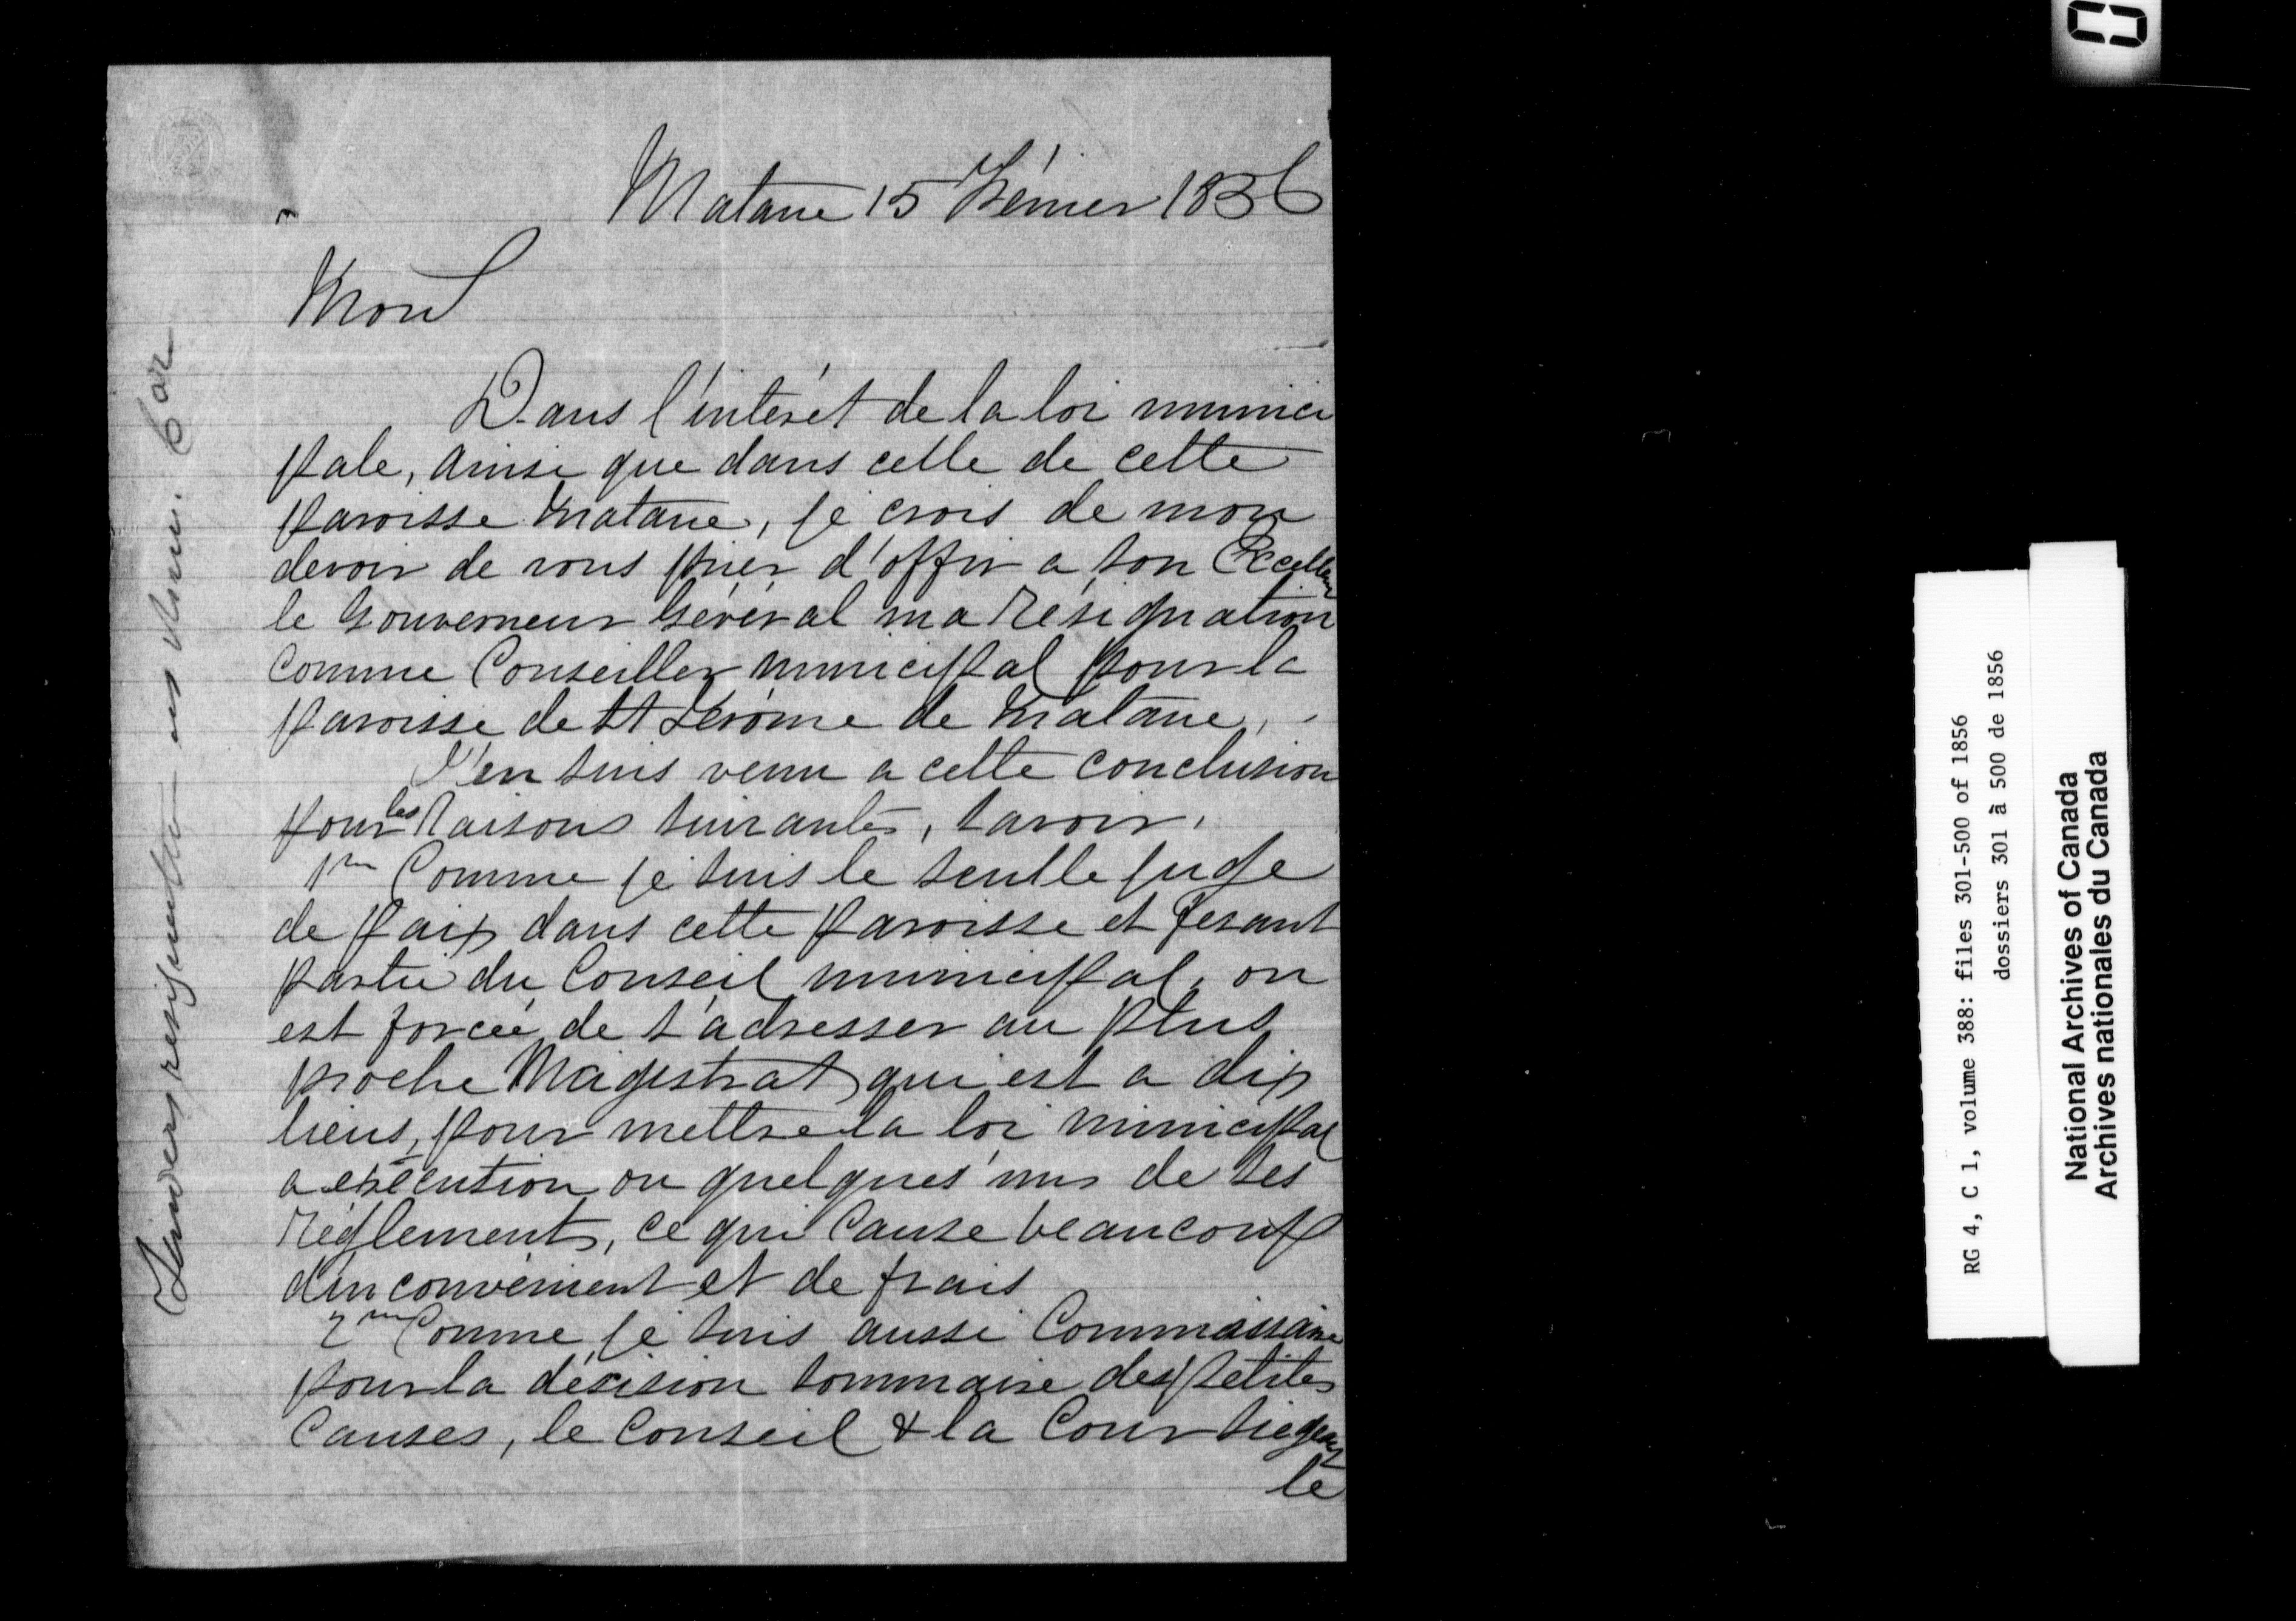 Matane 15 Février 1856
Monsr
Dans l'intérêt de la loi munici
pale, ainsi que dans celle de cette
paroisse Matane, je crois de mon
devoir de vous prier d'offrir a son Excellen
le Gouverneur Général ma résignation
comme Conseiller municipal pour la
paroisse de St Jérôme de Matane.
J'en suis venu a cette conclusion
pour les Raisons suivantes, savoir,
1re Comme je suis le seulle juge
de paix dans cette paroisse et fesant
partie du Conseil municipal, on
est forcée de s'adresser au plus
proche Magistrat qui est a dix
lieus, pour mettre la loi municipal
a exécution ou quelques'uns de ses
Réglements, ce qui cause beaucoup
d'inconvénient et de frais
2me Comme je suis aussi Commissaire
pour la décision sommaire des petites
Causes, le Conseil & la Cour siegean
le
RG 4, C 1, volume 388: files 301-500 of 1856
dossiers 301 à 500 de 1856
National Archives of Canada
Archives nationales du Canada